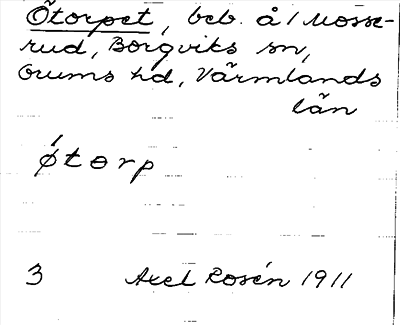 Ötorpet, beb. å / Mosse-
rud, Borgviks sn,
Grums hd, Värmlands
län
ǿtorp
3 Axel Rosén 1911